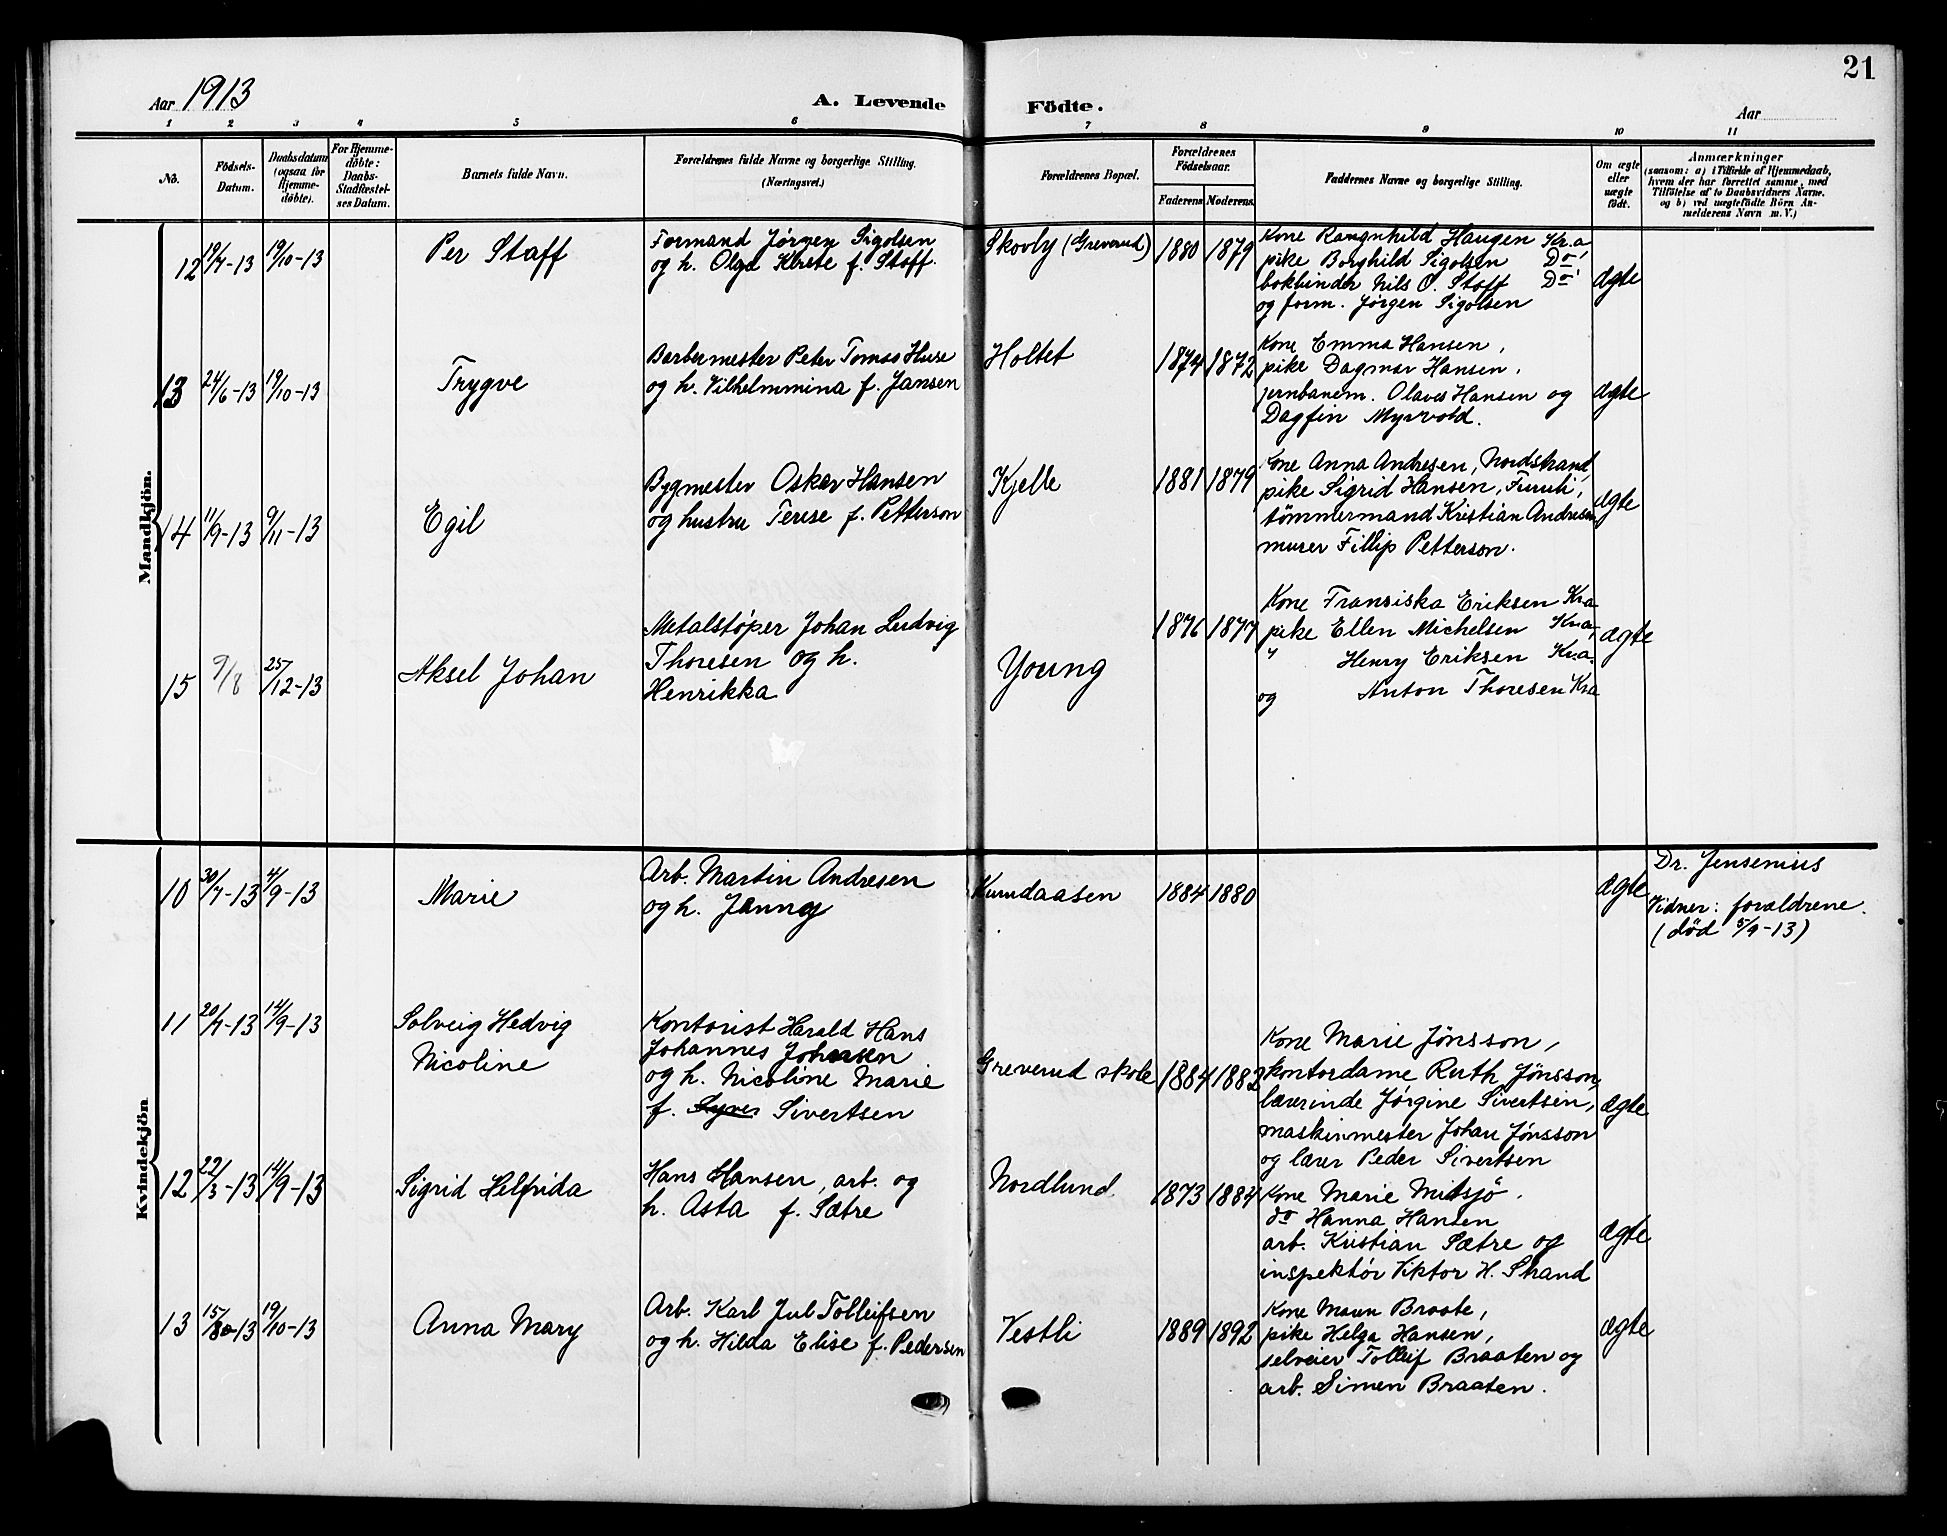 21
Aar 1913
A. Levende Födte.
Aar
1 2 3 4 5 6 7 8 9 10 11
No.
Födsels-Datum.
Daabsdatum (ogsaa for Hjemme-döbte).
For Hjemme-döbte: Daabs-Stadfæstel-ses Datum.
Barnets fulde Navn.
Forældrenes fulde Navne og borgerlige Stilling.
(Næringsvei.)
Forældrenes Bopæl.
Forældrenes Födselsaar.
Faderens Moderens
Faddernes Navne og borgerlige Stilling.
Om ægte eller uægte födt.
Anmærkninger
(saasom: a) i Tilfælde af Hjemmedaab,
hvem der har forrettet samme, med
Tilföielse af to Daabsvidners Navne,
og b) ved uægtefödte Börn An-
melderens Navn m. V.)
Mandkjön.
12 19/7-13 19/10-13 Per Staff
Formand Jørgen Sigolsen
og h. Olga Kirste f. Staff.
Skovly (Greverud) 1880 1879
Kone Rangnhild Haugen Kr.a
pike Borghild Sigolsen Do
bokbinder Nils O. Staff Do
og form. Jørgen Sigolsen
ægte
13 24/6-13 19/10-13 Trygve
Barbermester Peter Tomas Huse
og h. Vilhelmmina f. Jansen
Holtet 1874 1872
Kone Emma Hansen,
pike Dagmar Hansen,
jernbanem. Olaves Hansen og
Dagfin Myrvold.
ægte
14 11/9-13 9/11-13 Egil
Bygmester Oskar Hansen
og hustru Terese f. Petterson
Kjelle 1881 1879
Kone Anna Andresen, Nordstrand,
pike Sigrid Hansen, Furuli,
tömmermand Kristian Andresen
murer Fillip Petterson.
ægte
15 9/8 25/12-13 Aksel Johan
Metalstøper Johan Ludvig
Thoresen og h.
Henrikka
Young 1876 1877
Kone Fransiska Eriksen Kra
pike Ellen Michelsen Kr.a,
" Henry Eriksen Kr.a.
og Anton Thoresen Kra
ægte
Kvindekjön
10 30/7-13 4/9-13 Marie
Arb. Martin Andresen
og h. Jenny
Kurudaasen 1884 1880
ægte
Dr. Jensenius
Vidner: forældrene.
(død 5/9-13)
11 20/7-13 14/9-13 Solveig Hedvig
Nicoline
Kontorist Harald Hans
Johannes Johnsen
og h. Nicoline Marie
f. Sivertsen
Greverud skole 1884 1882
Kone Marie Jönsson,
kontordame Ruth Jönsson,
lærerinde Jørgine Sivertsen,
maskinmester Johan Jønsson
og lærer Peder Sivertsen
ægte
12 22/3-13 14/9-13 Sigrid Helfrida
Hans Hansen, arb. og
h. Asta f. Sætre
Nordlund. 1873 1884
Kone Marie Mitsjö.
do Hanna Hansen
arb. Kristian Sætre og
inspektör Viktor H. Strand
ægte
13 15/8-13 19/10-13 Anna Mary
Arb. Karl Jul Tolleifsen
og h. Hilda Elise f. Pedersen
Vestli 1889 1892
Kone Maun Braate,
pike Helga Hansen,
selveier Tolleif Braaten og
arb. Simen Braaten.
ægte